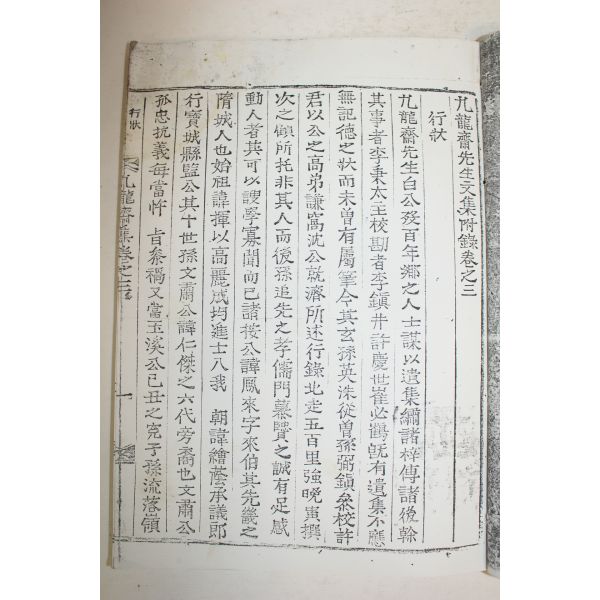 九龍齋先生文集附錄卷之三
行狀
九龍齋先生白公歿百年鄕之人士謀以遺集繡諸梓傳諸後幹
其事者李秉太主校勘者李鎭井許慶世崔必鶴旣有遺集不應
無記德之狀而未曾有屬筆今其玄孫英洙從曾孫弼鎭叅校許
君以公之高弟謙窩沈公就濟所述行錄北走五百里強晩寅撰
次之顧所托非其人而後孫追先之孝儒門慕賢之誠有足感
動人者其可以謏學寡聞而已諸按公諱鳳來字來伯其先畿之
隋城人也始祖諱揮以高麗成均進士入我 朝諱繪蔭承議郎
行寶城縣監公其十世孫文肅公諱仁傑之六代旁裔也文肅公
孤忠抗義每當忤 旨奏稱又當玉溪公己丑之寃子孫流落嶺
行狀
九龍齋集卷之三
一